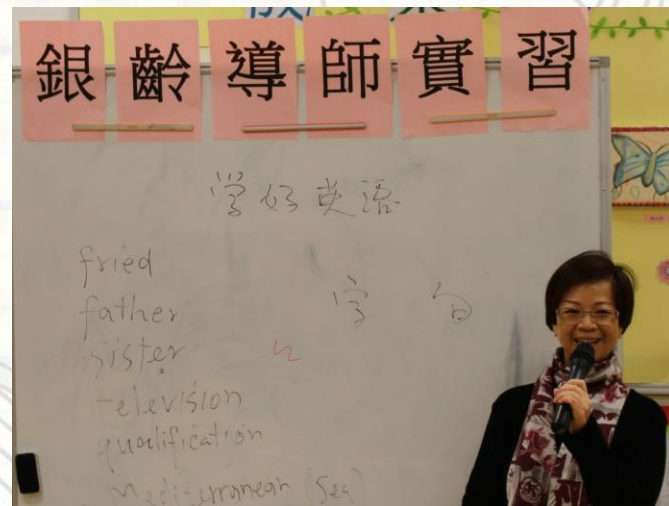 銀齡導師實習
学好英语
fried
father
字 句
sister
television
qualification
Mediterranean (Sea)